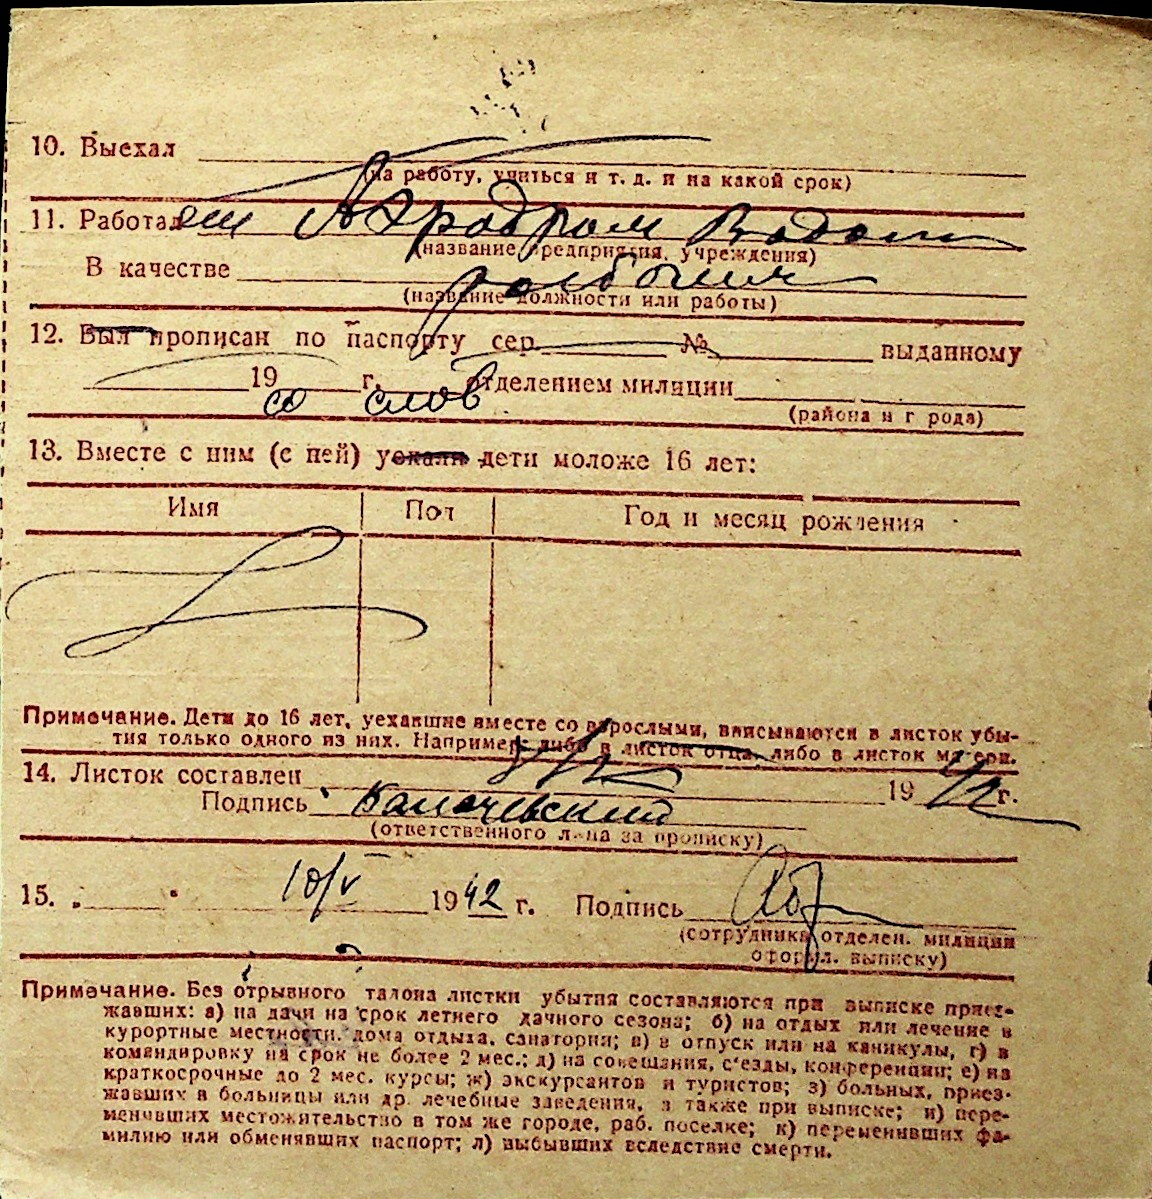 10. Выехал
(на работу, учиться и т. д. и на какой срок)
11. Работал Аэродром
(название предприятия, учреждения)
В качестве рабочий
(название должности или работы)
12. Был прописан по паспорту сер. № выданному
19 г. отделением милиции
со слов
(района и города)
13. Вместе с ним (с ней) уехали дети моложе 16 лет:
Имя Пол Год и месяц рождения
Примечание. Дети до 16 лет, уехавшие вместе со взрослыми, вписываются в листок убы-
тия только одного из них. Например: либо в листок отца, либо в листок матери.
14. Листок составлен 19 42 г.
Подпись
(ответственного лица за прописку)
15. „ “ 10/V 1942 г. Подпись
(сотрудника отделен. милиции
оформл. выписку)
Примечание. Без отрывного талона листки убытия составляются при выписке приез-
жавших: а) на дачи на срок летнего дачного сезона; б) на отдых или лечение в
курортные местности, дома отдыха, санатории; в) в отпуск или на каникулы, г) в
командировку на срок не более 2 мес.; д) на совещания, с'езды, конференции; е) на
краткосрочные до 2 мес. курсы; ж) экскурсантов и туристов; з) больных, приез-
жавших в больницы или др. лечебные заведения, а также при выписке; и) пере-
менивших местожительство в том же городе, раб. поселке; к) переменивших фа-
милию или обменявших паспорт; л) выбывших вследствие смерти.